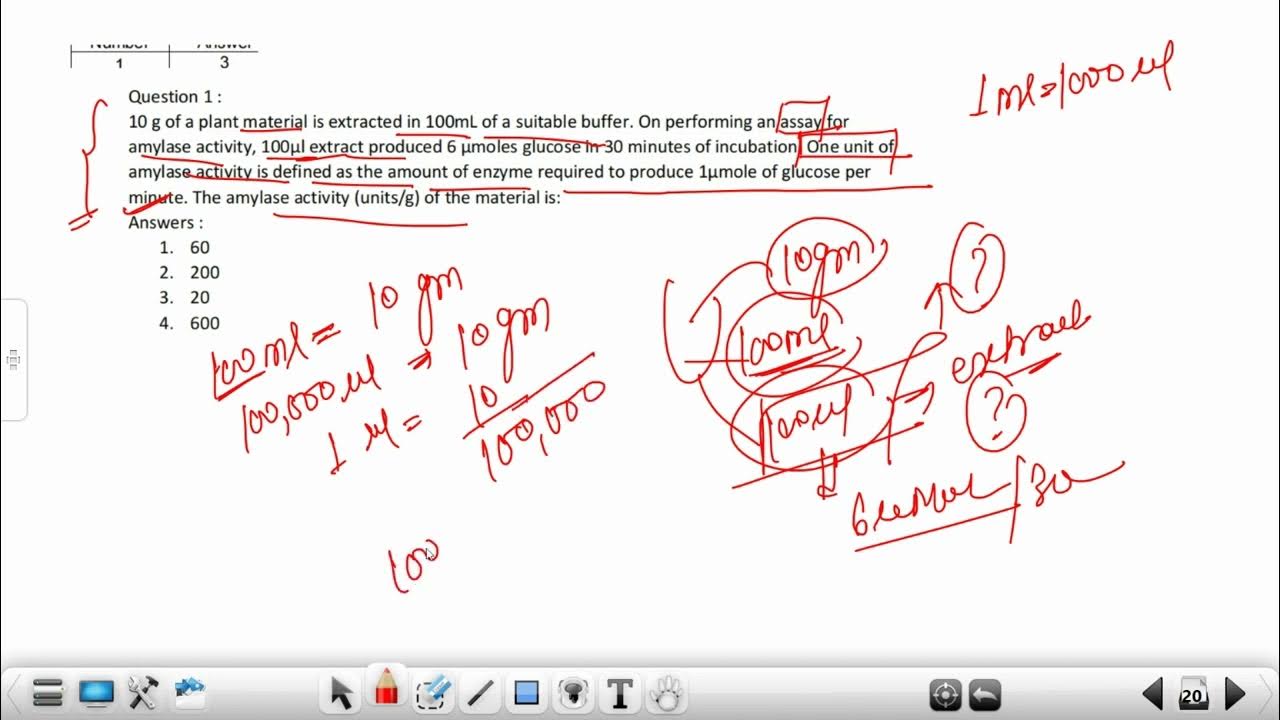 Number Answer
1 3
1 ml = 1000 µl
Question 1 :
10 g of a plant material is extracted in 100mL of a suitable buffer. On performing an assay for
amylase activity, 100µl extract produced 6 µmoles glucose in 30 minutes of incubation. One unit of
amylase activity is defined as the amount of enzyme required to produce 1µmole of glucose per
minute. The amylase activity (units/g) of the material is:
Answers :
1. 60
2. 200
3. 20
4. 600
100ml = 10 gm
100,000 µl = 10 gm
1 µl = 10
100,000
100
10gm
?
100ml
100µl → extract
?
6 µmol / 30
20